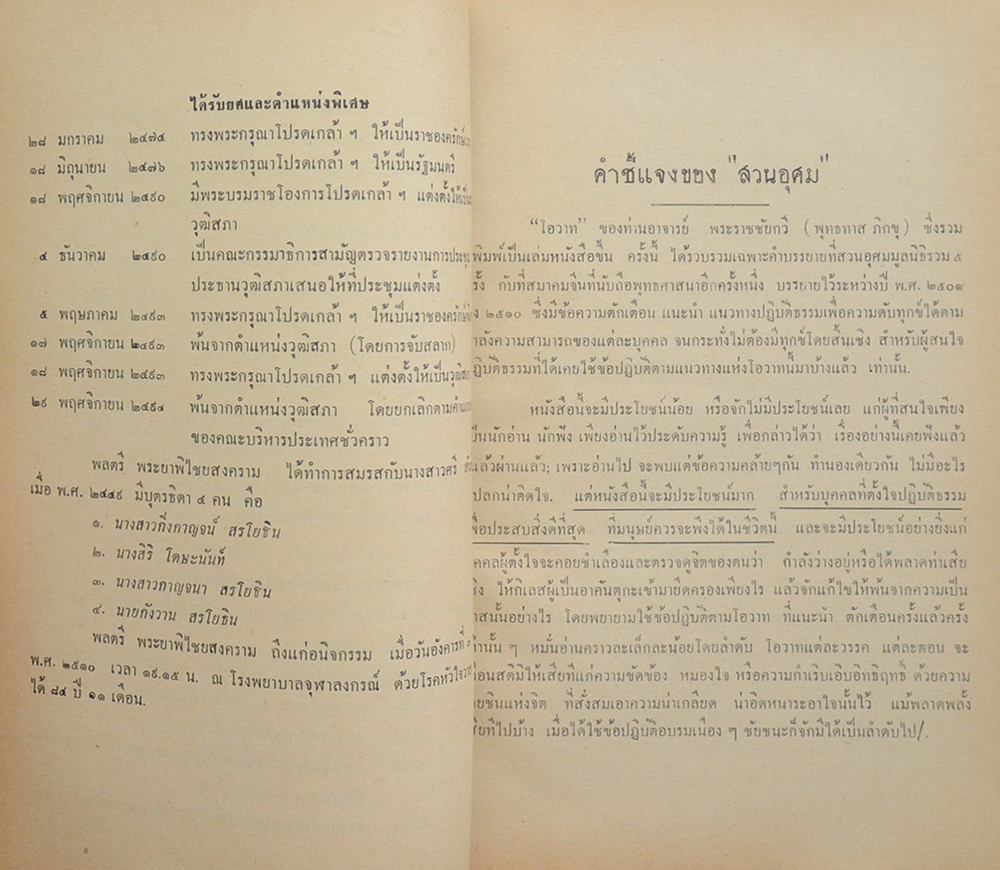 ได้รับยศและตำแหน่งพิเศษ
๒๘ มกราคม ๒๔๗๕ ทรงพระกรุณาโปรดเกล้า ฯ ให้เป็นราชองครักษ์
๑๘ มิถุนายน ๒๔๗๖ ทรงพระกรุณาโปรดเกล้า ฯ ให้เป็นรัฐมนตรี
๑๘ พฤศจิกายน ๒๔๙๐ มีพระบรมราชโองการโปรดเกล้า ฯ แต่งตั้งให้เป็น
วุฒิสภา
๔ ธันวาคม ๒๔๙๐ เป็นคณะกรรมาธิการสามัญตรวจรายงานการประชุม
ประธานวุฒิสภาเสนอให้ที่ประชุมแต่งตั้ง
๕ พฤษภาคม ๒๔๙๓ ทรงพระกรุณาโปรดเกล้า ฯ ให้เป็นราชองครักษ์
๑๗ พฤศจิกายน ๒๔๙๓ พ้นจากตำแหน่งวุฒิสภา (โดยการจับสลาก)
๑๘ พฤศจิกายน ๒๔๙๓ ทรงพระกรุณาโปรดเกล้า ฯ แต่งตั้งให้เป็นวุฒิสภา
๒๙ พฤศจิกายน ๒๔๙๔ พ้นจากตำแหน่งวุฒิสภา โดยยกเลิกตาม
ของคณะบริหารประเทศชั่วคราว
พลตรี พระยาพิไชยสงคราม ได้ทำการสมรสกับนางสาวศรี
เมื่อ พ.ศ. ๒๔๔๙ มีบุตรธิดา ๔ คน คือ
๑. นางสาวกิ่งกาญจน์ สรโยธิน
๒. นางสิริ โดษะนันท์
๓. นางสาวกาญจนา สรโยธิน
๔. นายกังวาน สรโยธิน
พลตรี พระยาพิไชยสงคราม ถึงแก่อนิจกรรม เมื่อวันอังคารที่
พ.ศ. ๒๕๑๐ เวลา ๑๙.๑๕ น. ณ โรงพยาบาลจุฬาลงกรณ์ ด้วยโรคหัวใจวาย
ได้ ๘๔ ปี ๑๑ เดือน.
คำชี้แจงของ "สวนอุศม"
"โอวาท" ของท่านอาจารย์ พระราชชัยกวี (พุทธทาส ภิกขุ) ซึ่งรวม
พิมพ์เป็นเล่มหนังสือขึ้น ครั้งนี้ ได้รวบรวมเฉพาะคำบรรยายที่สวนอุศมมูลนิธิรวม ๕
รั้ง กับที่สมาคมจีนที่นับถือพุทธศาสนาอีกครั้งหนึ่ง บรรยายไว้ระหว่างปี พ.ศ. ๒๕๐๑
ึง ๒๕๑๐ ซึ่งมีข้อความตักเตือน แนะนำ แนวทางปฏิบัติธรรมเพื่อความดับทุกข์ได้ตาม
ำลังความสามารถของแต่ละบุคคล จนกระทั่งไม่ต้องมีทุกข์โดยสิ้นเชิง สำหรับผู้สนใจ
ฏิบัติธรรมที่ได้เคยใช้ข้อปฏิบัติตามแนวทางแห่งโอวาทนี้มาบ้างแล้ว เท่านั้น.
หนังสือนี้จะมีประโยชน์น้อย หรือจักไม่มีประโยชน์เลย แก่ผู้ที่สนใจเพียง
ป็นนักอ่าน นักฟัง เพียงอ่านไว้ประดับความรู้ เพื่อกล่าวได้ว่า เรื่องอย่างนี้เคยฟังแล้ว
แล้วผ่านแล้ว; เพราะอ่านไป จะพบแต่ข้อความคล้ายๆกัน ทำนองเดียวกัน ไม่มีอะไร
ปลกน่าติดใจ. แต่หนังสือนี้จะมีประโยชน์มาก สำหรับบุคคลที่ตั้งใจปฏิบัติธรรม
พื่อประสบสิ่งดีที่สุด ที่มนุษย์ควรจะพึงได้ในชีวิตนี้ และจะมีประโยชน์อย่างยิ่งแก่
คคลผู้ตั้งใจจะคอยชำเลืองและตรวจดูจิตของตนว่า กำลังว่างอยู่หรือได้พลาดท่าเสีย
ชิง ให้กิเลสผู้เป็นอาคันตุกะเข้ามายึดครองเพียงไร แล้วจักแก้ไขให้พ้นจากความเป็น
าสนั้นอย่างไร โดยพยายามใช้ข้อปฏิบัติตามโอวาท ที่แนะนำ ตักเตือนครั้งแล้วครั้ง
่านั้น ๆ หมั่นอ่านคราวละเล็กละน้อยโดยลำดับ โอวาทแต่ละวรรค แต่ละตอน จะ
ือนสติมิให้เสียทีแก่ความขัดข้อง หมองใจ หรือความกำเริบเอิบอิทธิฤทธิ์ ด้วยความ
ยชินแห่งจิต ที่สั่งสมเอาความน่าเกลียด น่าอิดหนาระอาใจนั้นไว้ แม้พลาดพลั้ง
สียทีไปบ้าง เมื่อได้ใช้ข้อปฏิบัติอบรมเนือง ๆ ชัยชนะก็จักมีได้เป็นลำดับไป/.